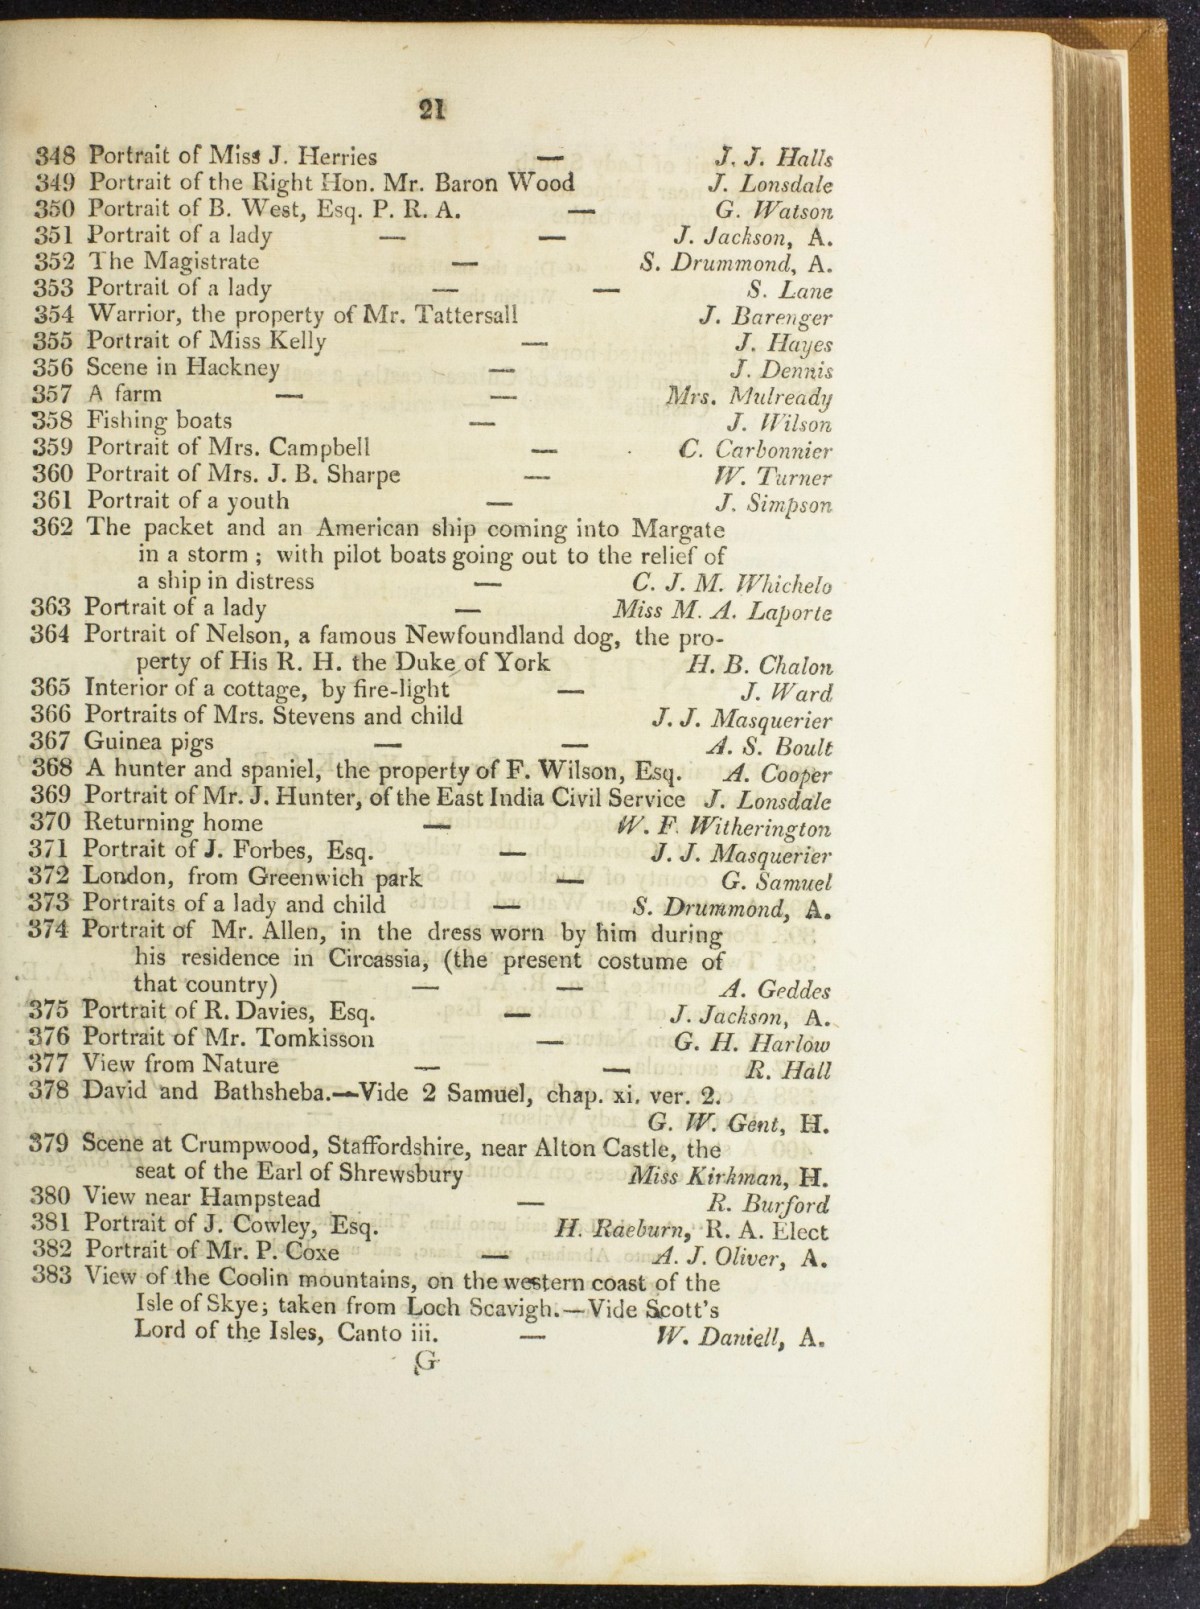 21
348 Portrait of Miss J. Herries — J. J. Halls
349 Portrait of the Right Hon. Mr. Baron Wood J. Lonsdale
350 Portrait of B. West, Esq. P. R. A. — G. Watson
351 Portrait of a lady — — J. Jackson, A.
352 The Magistrate — S. Drummond, A.
353 Portrait of a lady — — S. Lane
354 Warrior, the property of Mr. Tattersall J. Barenger
355 Portrait of Miss Kelly — J. Hayes
356 Scene in Hackney — J. Dennis
357 A farm — — Mrs. Mulready
358 Fishing boats — J. Wilson
359 Portrait of Mrs. Campbell — C. Carbonnier
360 Portrait of Mrs. J. B. Sharpe — W. Turner
361 Portrait of a youth — J. Simpson
362 The packet and an American ship coming into Margate
in a storm ; with pilot boats going out to the relief of
a ship in distress — C. J. M. Whichelo
363 Portrait of a lady — Miss M. A. Laporte
364 Portrait of Nelson, a famous Newfoundland dog, the pro-
perty of His R. H. the Duke of York H. B. Chalon
365 Interior of a cottage, by fire-light — J. Ward
366 Portraits of Mrs. Stevens and child J. J. Masquerier
367 Guinea pigs — — A. S. Boult
368 A hunter and spaniel, the property of F. Wilson, Esq. A. Cooper
369 Portrait of Mr. J. Hunter, of the East India Civil Service J. Lonsdale
370 Returning home — W. F. Witherington
371 Portrait of J. Forbes, Esq. — J. J. Masquerier
372 London, from Greenwich park — G. Samuel
373 Portraits of a lady and child — S. Drummond, A.
374 Portrait of Mr. Allen, in the dress worn by him during
his residence in Circassia, (the present costume of
that country) — — A. Geddes
375 Portrait of R. Davies, Esq. — J. Jackson, A.
376 Portrait of Mr. Tomkisson — G. H. Harlow
377 View from Nature — — R. Hall
378 David and Bathsheba.—Vide 2 Samuel, chap. xi. ver. 2.
G. W. Gent, H.
379 Scene at Crumpwood, Staffordshire, near Alton Castle, the
seat of the Earl of Shrewsbury Miss Kirkman, H.
380 View near Hampstead — R. Burford
381 Portrait of J. Cowley, Esq. H. Raeburn, R. A. Elect
382 Portrait of Mr. P. Coxe — A. J. Oliver, A.
383 View of the Coolin mountains, on the western coast of the
Isle of Skye; taken from Loch Scavigh.—Vide Scott's
Lord of the Isles, Canto iii. — W. Daniell, A.
G